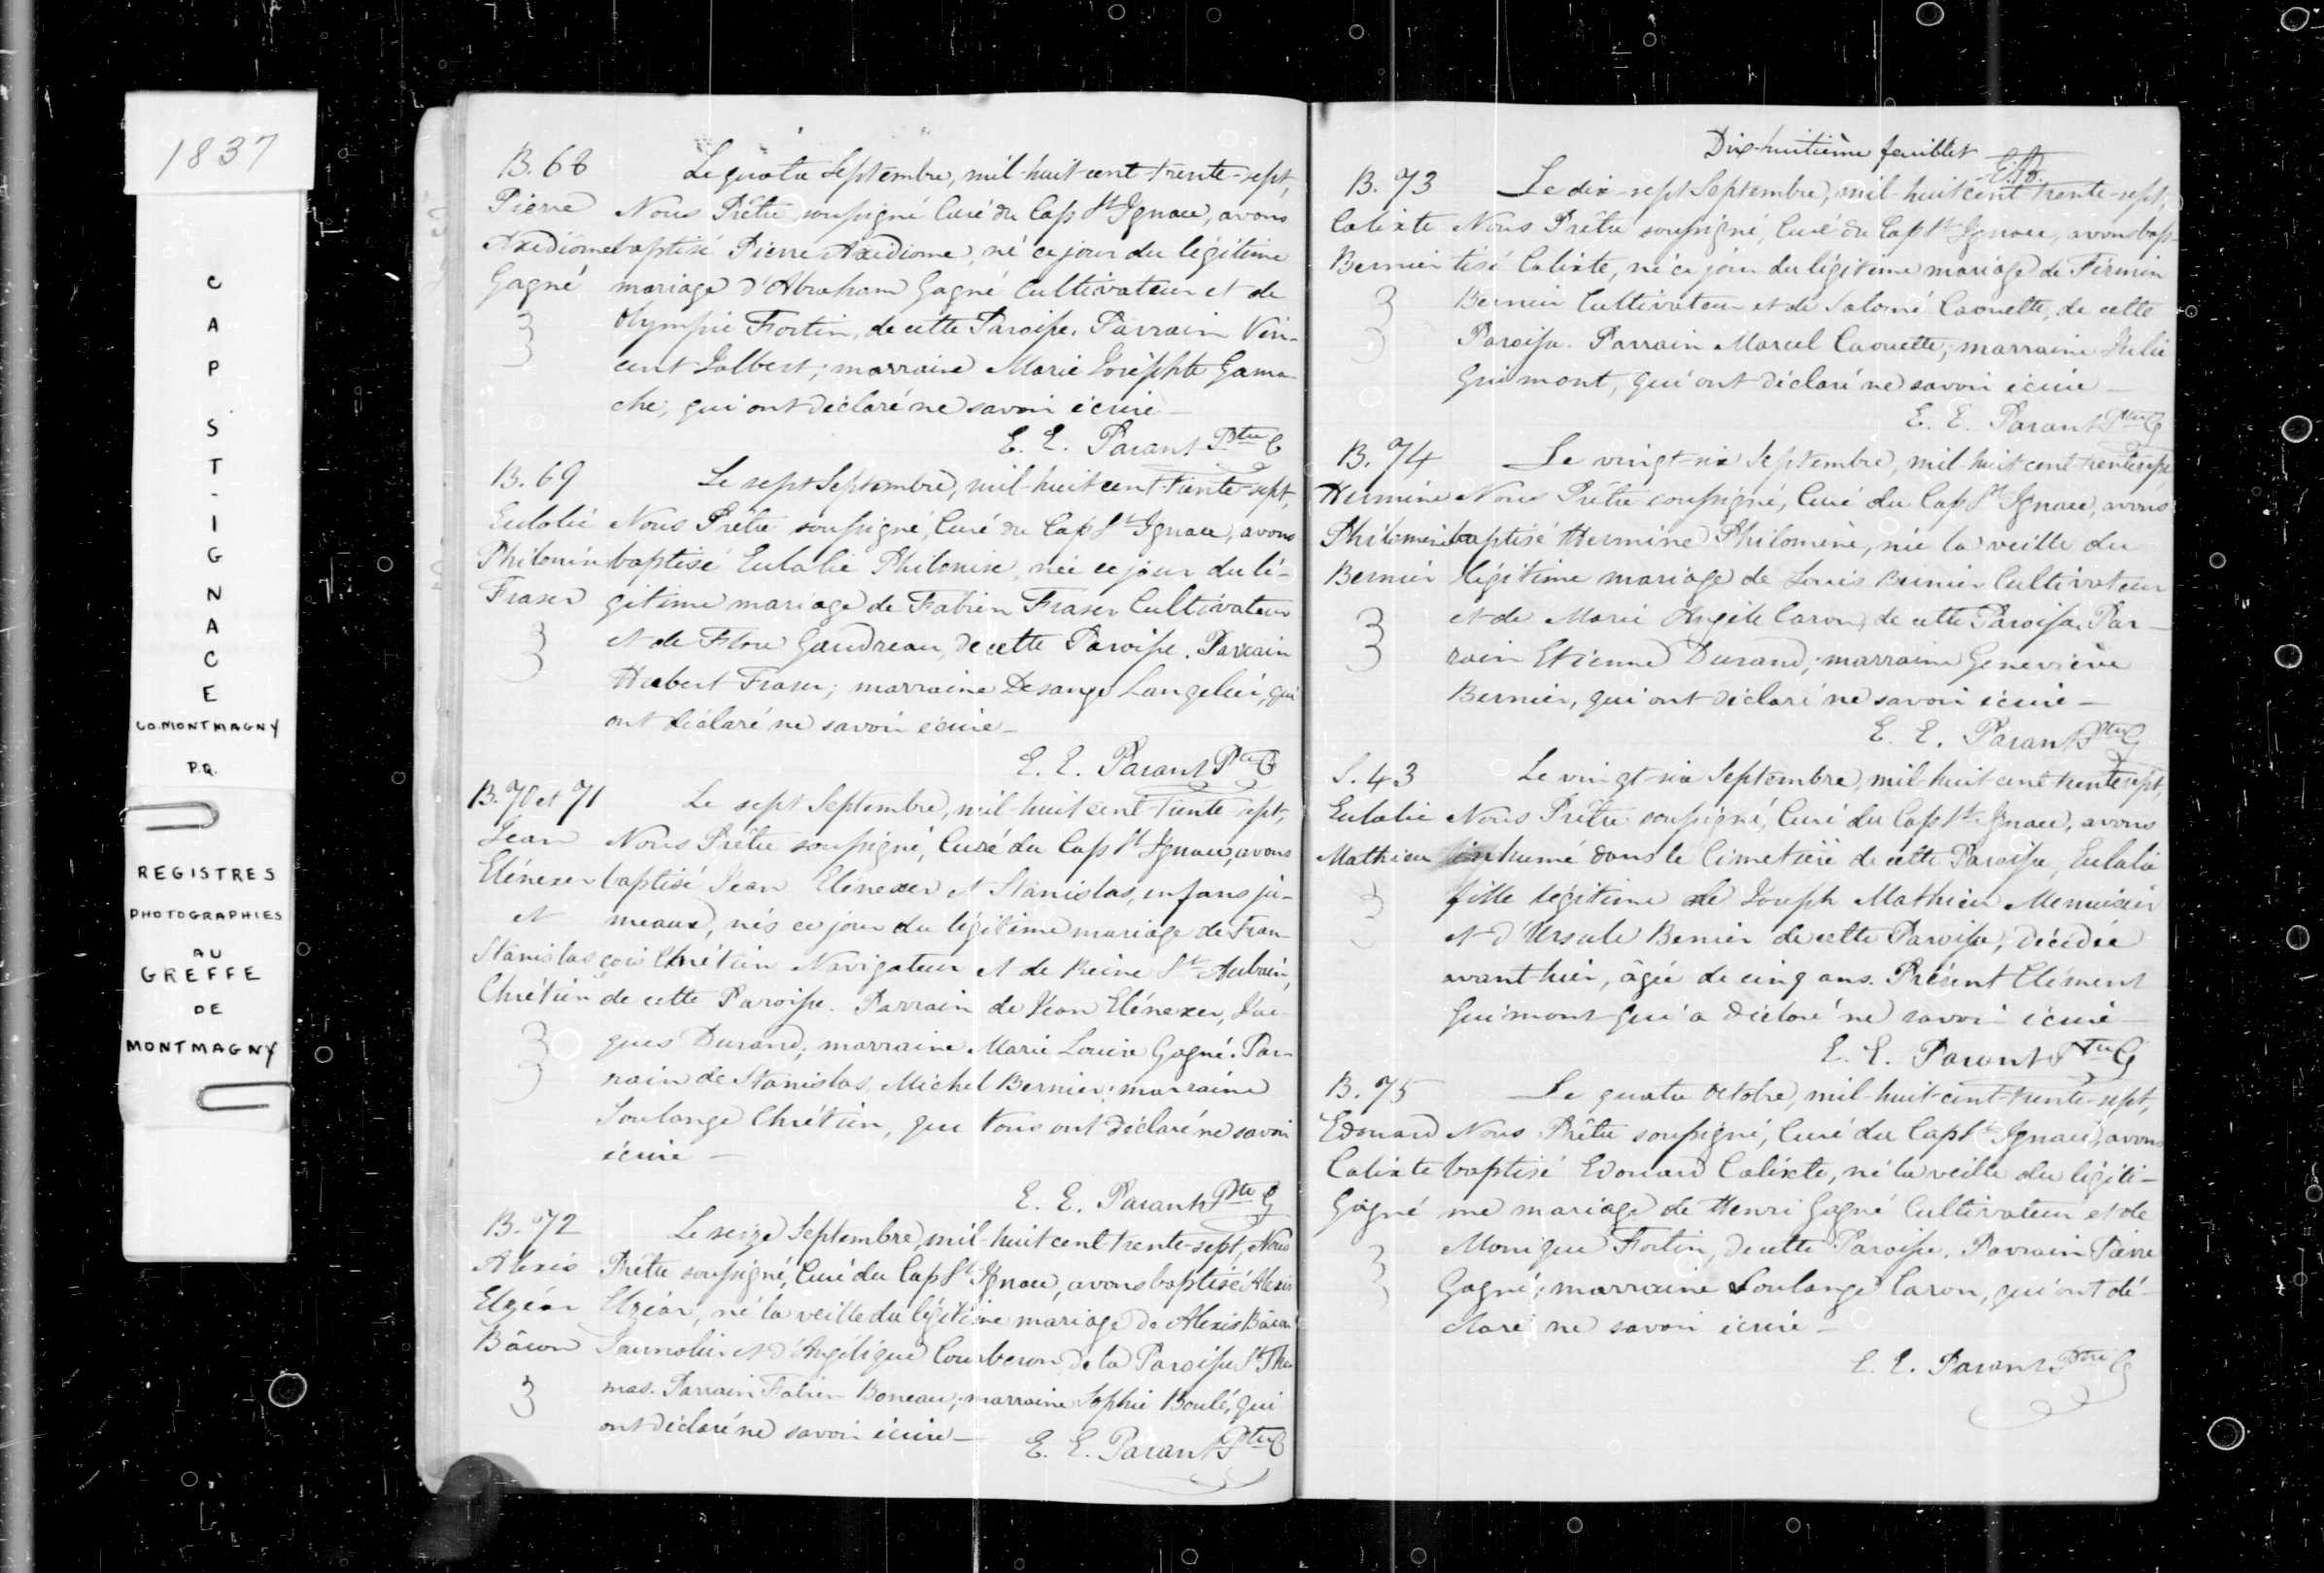 1837
CAP ST-IGNACE
CO. MONTMAGNY
P.Q.
REGISTRES
PHOTOGRAPHIES
AU
GREFFE
DE
MONTMAGNY
B. 68
Pierre
Axidiome
Gagné
Le quatre Septembre, mil-huit-cent-trente-sept,
Nous Prêtre soussigné Curé du Cap St Ignace, avons
baptisé Pierre Axidiome, né ce jour du légitime
mariage d'Abraham Gagné Cultivateur et de
Olympie Fortin, de cette Paroisse. Parrain Vin-
cent Jalbert; marraine Marie Josephte Gama-
che, qui ont déclaré ne savoir écrire —
E. E. Parant Ptre C
B. 69
Eulalie
Philonise
Fraser
Le sept Septembre, mil-huit cent-trente-sept,
Nous Prêtre soussigné, Curé du Cap St Ignace, avons
baptisé Eulalie Philonise, née ce jour du lé-
gitime mariage de Fabien Fraser Cultivateur
et de Flore Gaudreau, de cette Paroisse. Parrain
Hubert Fraser; marraine Desange Langelier, qui
ont déclaré ne savoir écrire —
E. E. Parant Ptre C
B. 70 et 71
Jean
Elénexer
et
Stanislas
Chrétien
Le sept Septembre, mil-huit cent-trente sept,
Nous Prêtre soussigné, Curé du Cap St Ignace, avons
baptisé Jean Elénexer et Stanislas, enfans ju-
meaux, nés ce jour du légitime mariage de Fran-
çois Chrétien Navigateur et de Reine St Aubain,
de cette Paroisse. Parrain de Jean Elénexer, Jac-
ques Durand; marraine Marie Louise Gagné. Par-
rain de Stanislas, Michel Bernier; marraine
Soulange Chrétien, qui tous ont déclaré ne savoir
écrire —
E. E. Parant Ptre C
B. 72
Alexis
Elzéar
Bâcon
Le seize Septembre, mil-huit cent-trente-sept, Nous
Prêtre soussigné, Curé du Cap St Ignace, avons baptisé Alexis
Elzéar, né la veille du légitime mariage de Alexis Bâcon
Journalier et d'Angélique Courberon, de la Paroisse St Tho-
mas. Parrain Fabien Boneau; marraine Sophie Boulé, qui
ont déclaré ne savoir écrire —
E. E. Parant Ptre C
Dix-huitième feuillet
B. 73
Calixte
Bernier
Le dix-sept Septembre, mil-huit cent trente-sept,
Nous Prêtre soussigné, Curé du Cap St Ignace, avons bap-
tisé Calixte, né ce jour du légitime mariage de Firmin
Bernier Cultivateur et de Salomé Caouette, de cette
Paroisse. Parrain Marcel Caouette; marraine Julie
Guimont, qui ont déclaré ne savoir écrire —
E. E. Parant Ptre C
B. 74
Hermine
Philomène
Bernier
Le vingt-six Septembre, mil huit cent trente sept,
Nous Prêtre soussigné, Curé du Cap St Ignace, avons
baptisé Hermine Philomène, née la veille du
légitime mariage de Louis Bernier Cultivateur
et de Marie Angèle Caron, de cette Paroisse. Par-
rain Etienne Durand; marraine Geneviève
Bernier, qui ont déclaré ne savoir écrire —
E. E. Parant Ptre C
S. 43
Eulalie
Mathieu
Le vingt-six Septembre, mil-huit cent trente sept,
Nous Prêtre soussigné, Curé du Cap St Ignace, avons
inhumé dans le Cimetière de cette Paroisse, Eulalie
fille légitime de Joseph Mathieu Menuisier
et d'Ursule Bernier de cette Paroisse, décédée
avant-hier, âgée de cinq ans. Présent Clément
Guimont qui a déclaré ne savoir écrire —
E. E. Parant Ptre C
B. 75
Edouard
Calixte
Gagné
Le quatre octobre, mil-huit-cent-trente-sept,
Nous Prêtre soussigné, Curé du Cap St Ignace, avons
baptisé Edouard Calixte, né la veille du légiti-
me mariage de Henri Gagné Cultivateur et de
Monique Fortin, de cette Paroisse. Parrain Pierre
Gagné; marraine Soulange Caron, qui ont dé-
claré ne savoir écrire —
E. E. Parant Ptre C